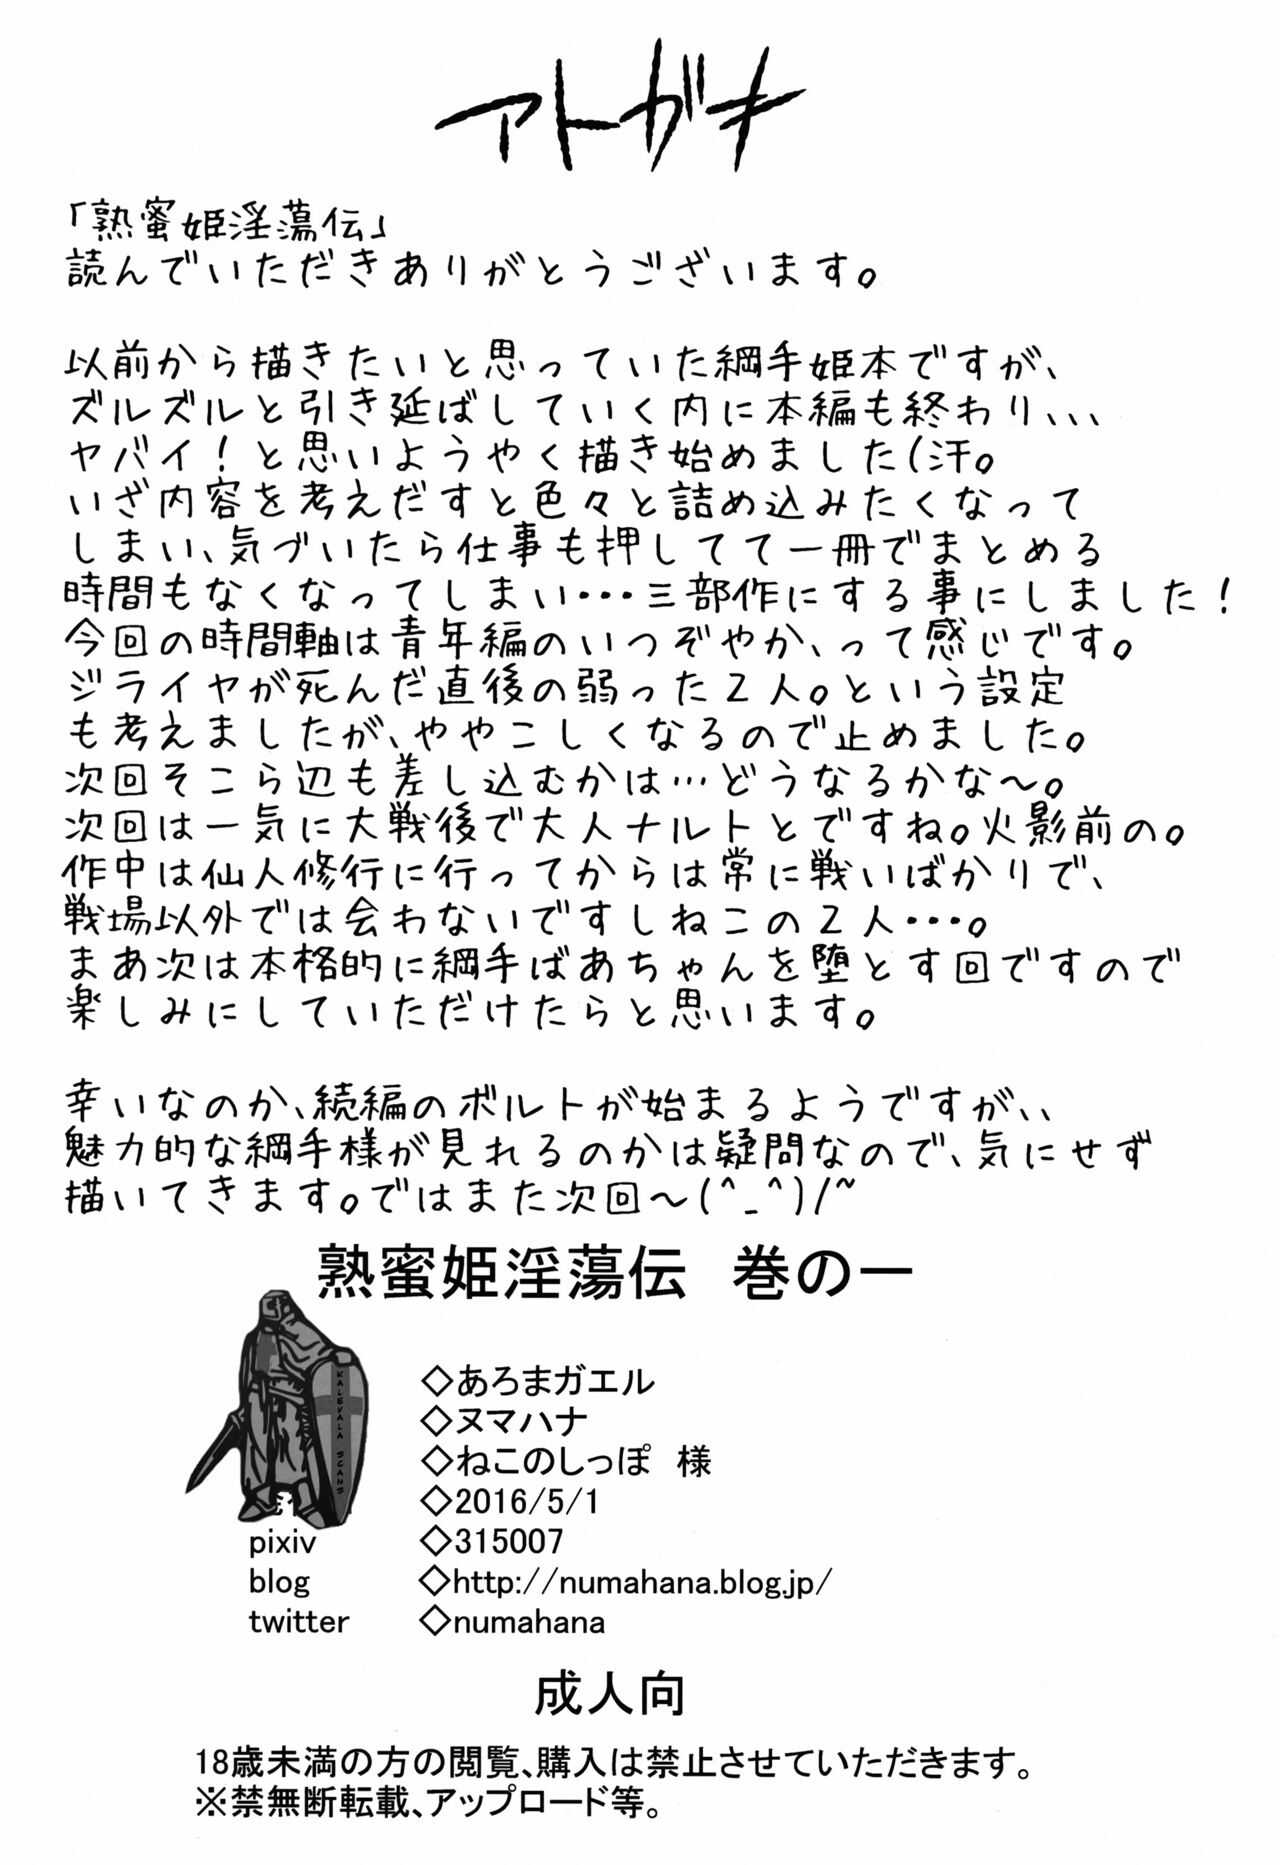 アトガキ
「熟蜜姫淫蕩伝」
読んでいただきありがとうございます。
以前から描きたいと思っていた綱手姫本ですが、
ズルズルと引き延ばしていく内に本編も終わり、、、
ヤバイ！と思いようやく描き始めました(汗。
いざ内容を考えだすと色々と詰め込みたくなって
しまい、気づいたら仕事も押してて一冊でまとめる
時間もなくなってしまい・・・三部作にする事にしました！
今回の時間軸は青年編のいつぞやか、って感じです。
ジライヤが死んだ直後の弱った２人。という設定
も考えましたが、ややこしくなるので止めました。
次回そこら辺も差し込むかは…どうなるかな〜。
次回は一気に大戦後で大人ナルトとですね。火影前の。
作中は仙人修行に行ってからは常に戦いばかりで、
戦場以外では会わないですしねこの２人・・・。
まあ次は本格的に綱手ばあちゃんを堕とす回ですので
楽しみにしていただけたらと思います。
幸いなのか、続編のボルトが始まるようですが、、
魅力的な綱手様が見れるのかは疑問なので、気にせず
描いてきます。ではまた次回〜(^_^)/~
熟蜜姫淫蕩伝　巻の一
KALEVALA SCANS
◇あろまガエル
◇ヌマハナ
◇ねこのしっぽ　様
◇2016/5/1
pixiv ◇315007
blog ◇http://numahana.blog.jp/
twitter ◇numahana
成人向
18歳未満の方の閲覧、購入は禁止させていただきます。
※禁無断転載、アップロード等。